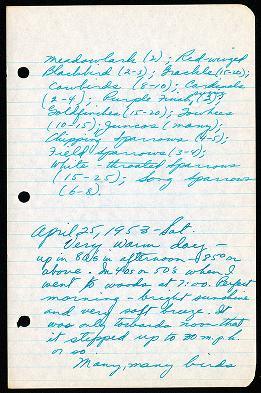 Meadowlark (2); Red-winged
Blackbird (2-3); Grackle (15-20);
Cowbirds (8-10); Cardinals
(2-4); Purple Finch (2);
Goldfinches (15-20); Towhees
(10-15); Juncos (many);
Chipping Sparrows (4-5);
Field Sparrows (3-4);
White-throated Sparrows
(15-25); Song Sparrows
(6-8)
April 25, 1953 - Sat.
Very warm day -
up in 80s in afternoon - 85° or
above. In 40s or 50s when I
went to woods at 7:00. Perfect
morning - bright sunshine
and very soft breeze. It
was only towards noon that
it stepped up to 30 m.p.h.
or so.
Many, many birds